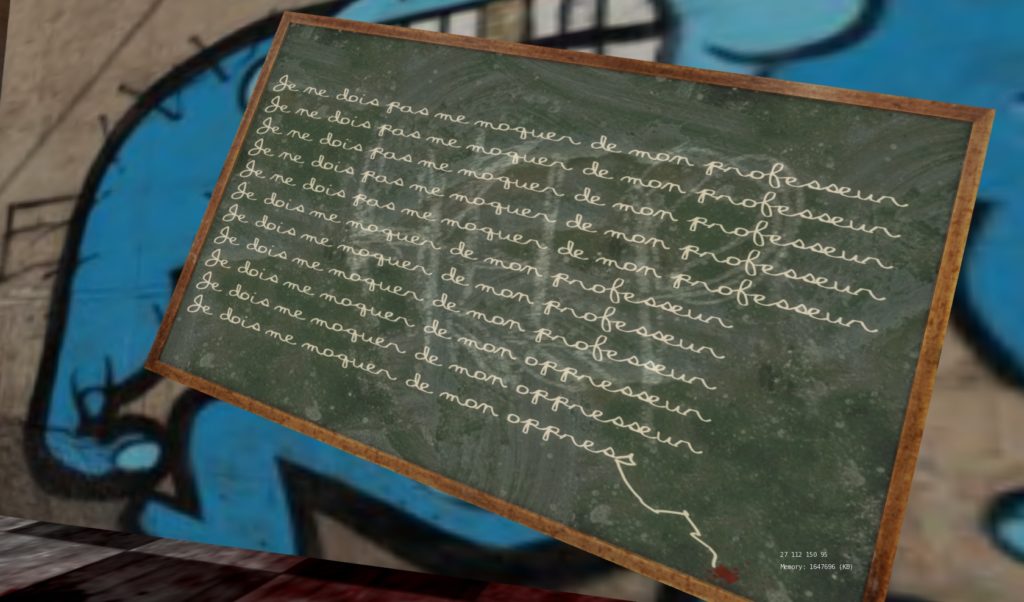 Je ne dois pas me moquer de mon professeur
Je ne dois pas me moquer de mon professeur
Je ne dois pas me moquer de mon professeur
Je ne dois pas me moquer de mon professeur
Je ne dois pas me moquer de mon professeur
Je dois me moquer de mon professeur
Je dois me moquer de mon professeur
Je dois me moquer de mon professeur
Je dois me moquer de mon oppresseur
Je dois me moquer de mon oppresseur
Je dois me moquer de mon oppress
27 112 150 95
Memory: 1647696 (KB)